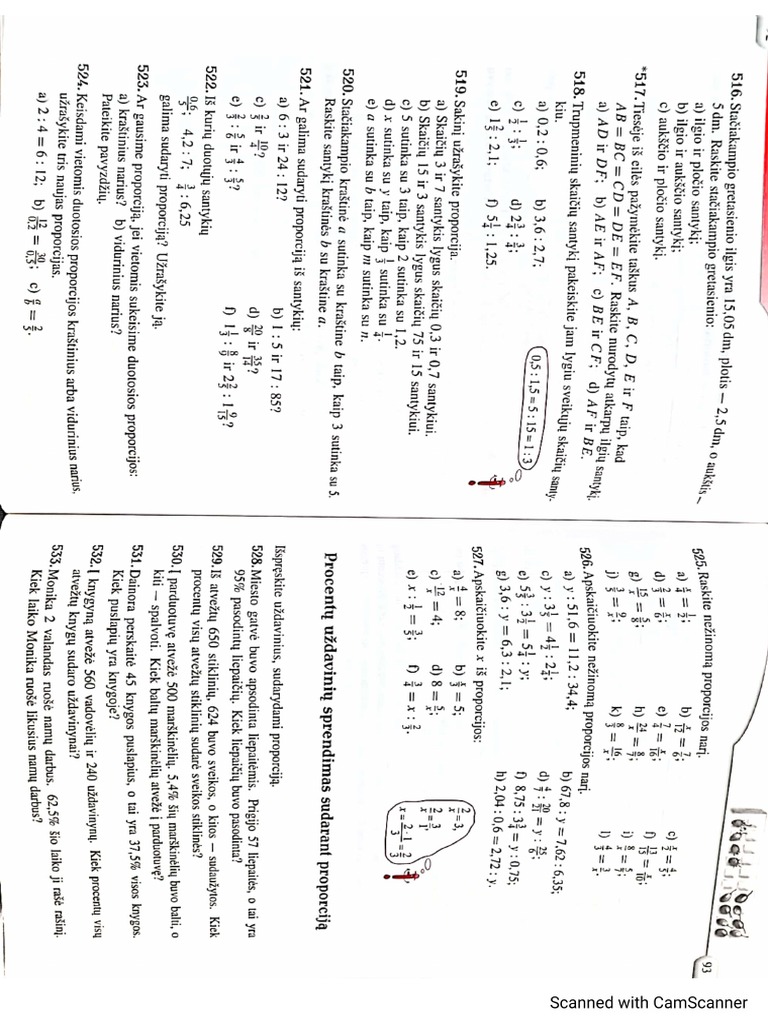 516. Stačiakampio gretasienio ilgis yra 15,05 dm, plotis — 2,5 dm, o aukštis —
5 dm. Raskite stačiakampio gretasienio:
a) ilgio ir pločio santykį;
b) ilgio ir aukščio santykį;
c) aukščio ir pločio santykį.
*517. Tiesėje iš eilės pažymėkite taškus A, B, C, D, E ir F taip, kad
AB = BC = CD = DE = EF. Raskite nurodytų atkarpų ilgių santykį:
a) AD ir DF; b) AE ir AF; c) BE ir CF; d) AF ir BE.
518. Trupmeninių skaičių santykį pakeiskite jam lygiu sveikųjų skaičių santy-
kiu.
0,5 : 1,5 = 5 : 15 = 1 : 3
a) 0,2 : 0,6; b) 3,6 : 2,7;
e) f) 5 1/4 : 1,25.
519. Sakinį užrašykite proporcija.
a) Skaičių 3 ir 7 santykis lygus skaičių 0,3 ir 0,7 santykiui.
b) Skaičių 15 ir 3 santykis lygus skaičių 75 ir 15 santykiui.
c) 5 sutinka su 3 taip, kaip 2 sutinka su 1,2.
d) x sutinka su y taip, kaip 1/3 sutinka su 1/4.
e) a sutinka su b taip, kaip m sutinka su n.
520. Stačiakampio kraštinė a sutinka su kraštine b taip, kaip 3 sutinka su 5.
Raskite santykį kraštinės b su kraštine a.
521. Ar galima sudaryti proporciją iš santykių:
a) 6 : 3 ir 24 : 12? b) 1 : 5 ir 17 : 85?
d) 20/8 ir 35/14?
522. Iš kurių duotųjų santykių
0,6/5; 4,2 : 7; 3/4 : 6,25
galima sudaryti proporciją? Užrašykite ją.
523. Ar gausime proporciją, jei vietomis sukeisime duotosios proporcijos:
a) kraštinius narius? b) vidurinius narius?
Pateikite pavyzdžių.
524. Keisdami vietomis duotosios proporcijos kraštinius arba vidurinius narius,
užrašykite tris naujas proporcijas.
a) 2 : 4 = 6 : 12; b) 12/0,2 = 30/0,5;
93
525. Raskite nežinomą proporcijos narį.
526. Apskaičiuokite nežinomą proporcijos narį.
a) y : 51,6 = 11,2 : 34,4; b) 67,8 : y = 7,62 : 6,35;
c) y : 3 1/2 = 4 1/2 : 2 1/4; d) 4/7 : 20/21 = y : 25/6;
f) 8,75 : 3 3/4 = y : 0,75;
g) 3,6 : y = 6,3 : 2,1; h) 2,04 : 0,6 = 2,72 : y.
527. Apskaičiuokite x iš proporcijos:
a) 4/x = 8; b) x/3 = 5;
c) 12/x = 4; d) 8 = 5/x;
e) x : 1/2 = 3/5; f) 3/4 = x : 2/3.
2/x = 3,
2/x = 3/1,
x = 2·1/3 = 2/3
Procentų uždavinių sprendimas sudarant proporciją
Išspręskite uždavinius, sudarydami proporciją.
528. Miesto gatvė buvo apsodinta liepaitėmis. Prigijo 57 liepaitės, o tai yra
95% pasodintų liepaičių. Kiek liepaičių buvo pasodinta?
529. Iš atvežtų 650 stiklinių, 624 buvo sveikos, o kitos — sudaužytos. Kiek
procentų visų atvežtų stiklinių sudarė sveikos stiklinės?
530. Į parduotuvę atvežė 500 marškinėlių. 5,4% šių marškinėlių buvo balti, o
kiti — spalvoti. Kiek baltų marškinėlių atvežė į parduotuvę?
531. Dainora perskaitė 45 knygos puslapius, o tai yra 37,5% visos knygos.
Kiek puslapių yra knygoje?
532. Į knygyną atvežė 560 vadovėlių ir 240 uždavinynų. Kiek procentų visų
atvežtų knygų sudaro uždavinynai?
533. Monika 2 valandas ruošė namų darbus. 62,5% šio laiko ji rašė rašinį.
Kiek laiko Monika ruošė likusius namų darbus?
Scanned with CamScanner